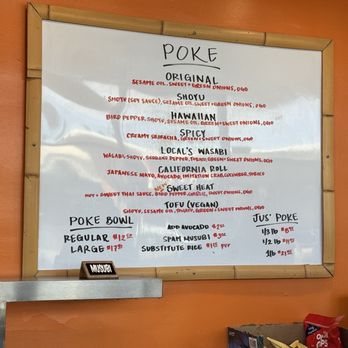 POKE
ORIGINAL
SESAME OIL, SWEET + GREEN ONIONS, OGO
SHOYU
SHOYU (SOY SAUCE), SESAME OIL, SWEET + GREEN ONIONS, OGO
HAWAIIAN
BIRD PEPPER, SHOYU, SESAME OIL, GREEN + SWEET ONIONS, OGO
SPICY
CREAMY SRIRACHA, GREEN + SWEET ONIONS, OGO
LOCAL'S WASABI
WASABI, SHOYU, PEPPER, GREEN + SWEET ONIONS, OGO
CALIFORNIA ROLL
JAPANESE MAYO, AVOCADO, IMITATION CRAB, CUCUMBER,
SWEET HEAT
HOT + SWEET THAI SAUCE, BIRD PEPPER, GARLIC, SWEET ONIONS, OGO
TOFU (VEGAN)
SHOYU, SESAME OIL, GREEN + SWEET ONIONS, OGO
POKE BOWL
REGULAR
LARGE
ADD AVOCADO
SPAM MUSUBI
SUBSTITUTE RICE per
JUS' POKE
1/3 lb
1/2 lb
1 lb
MUSUBI